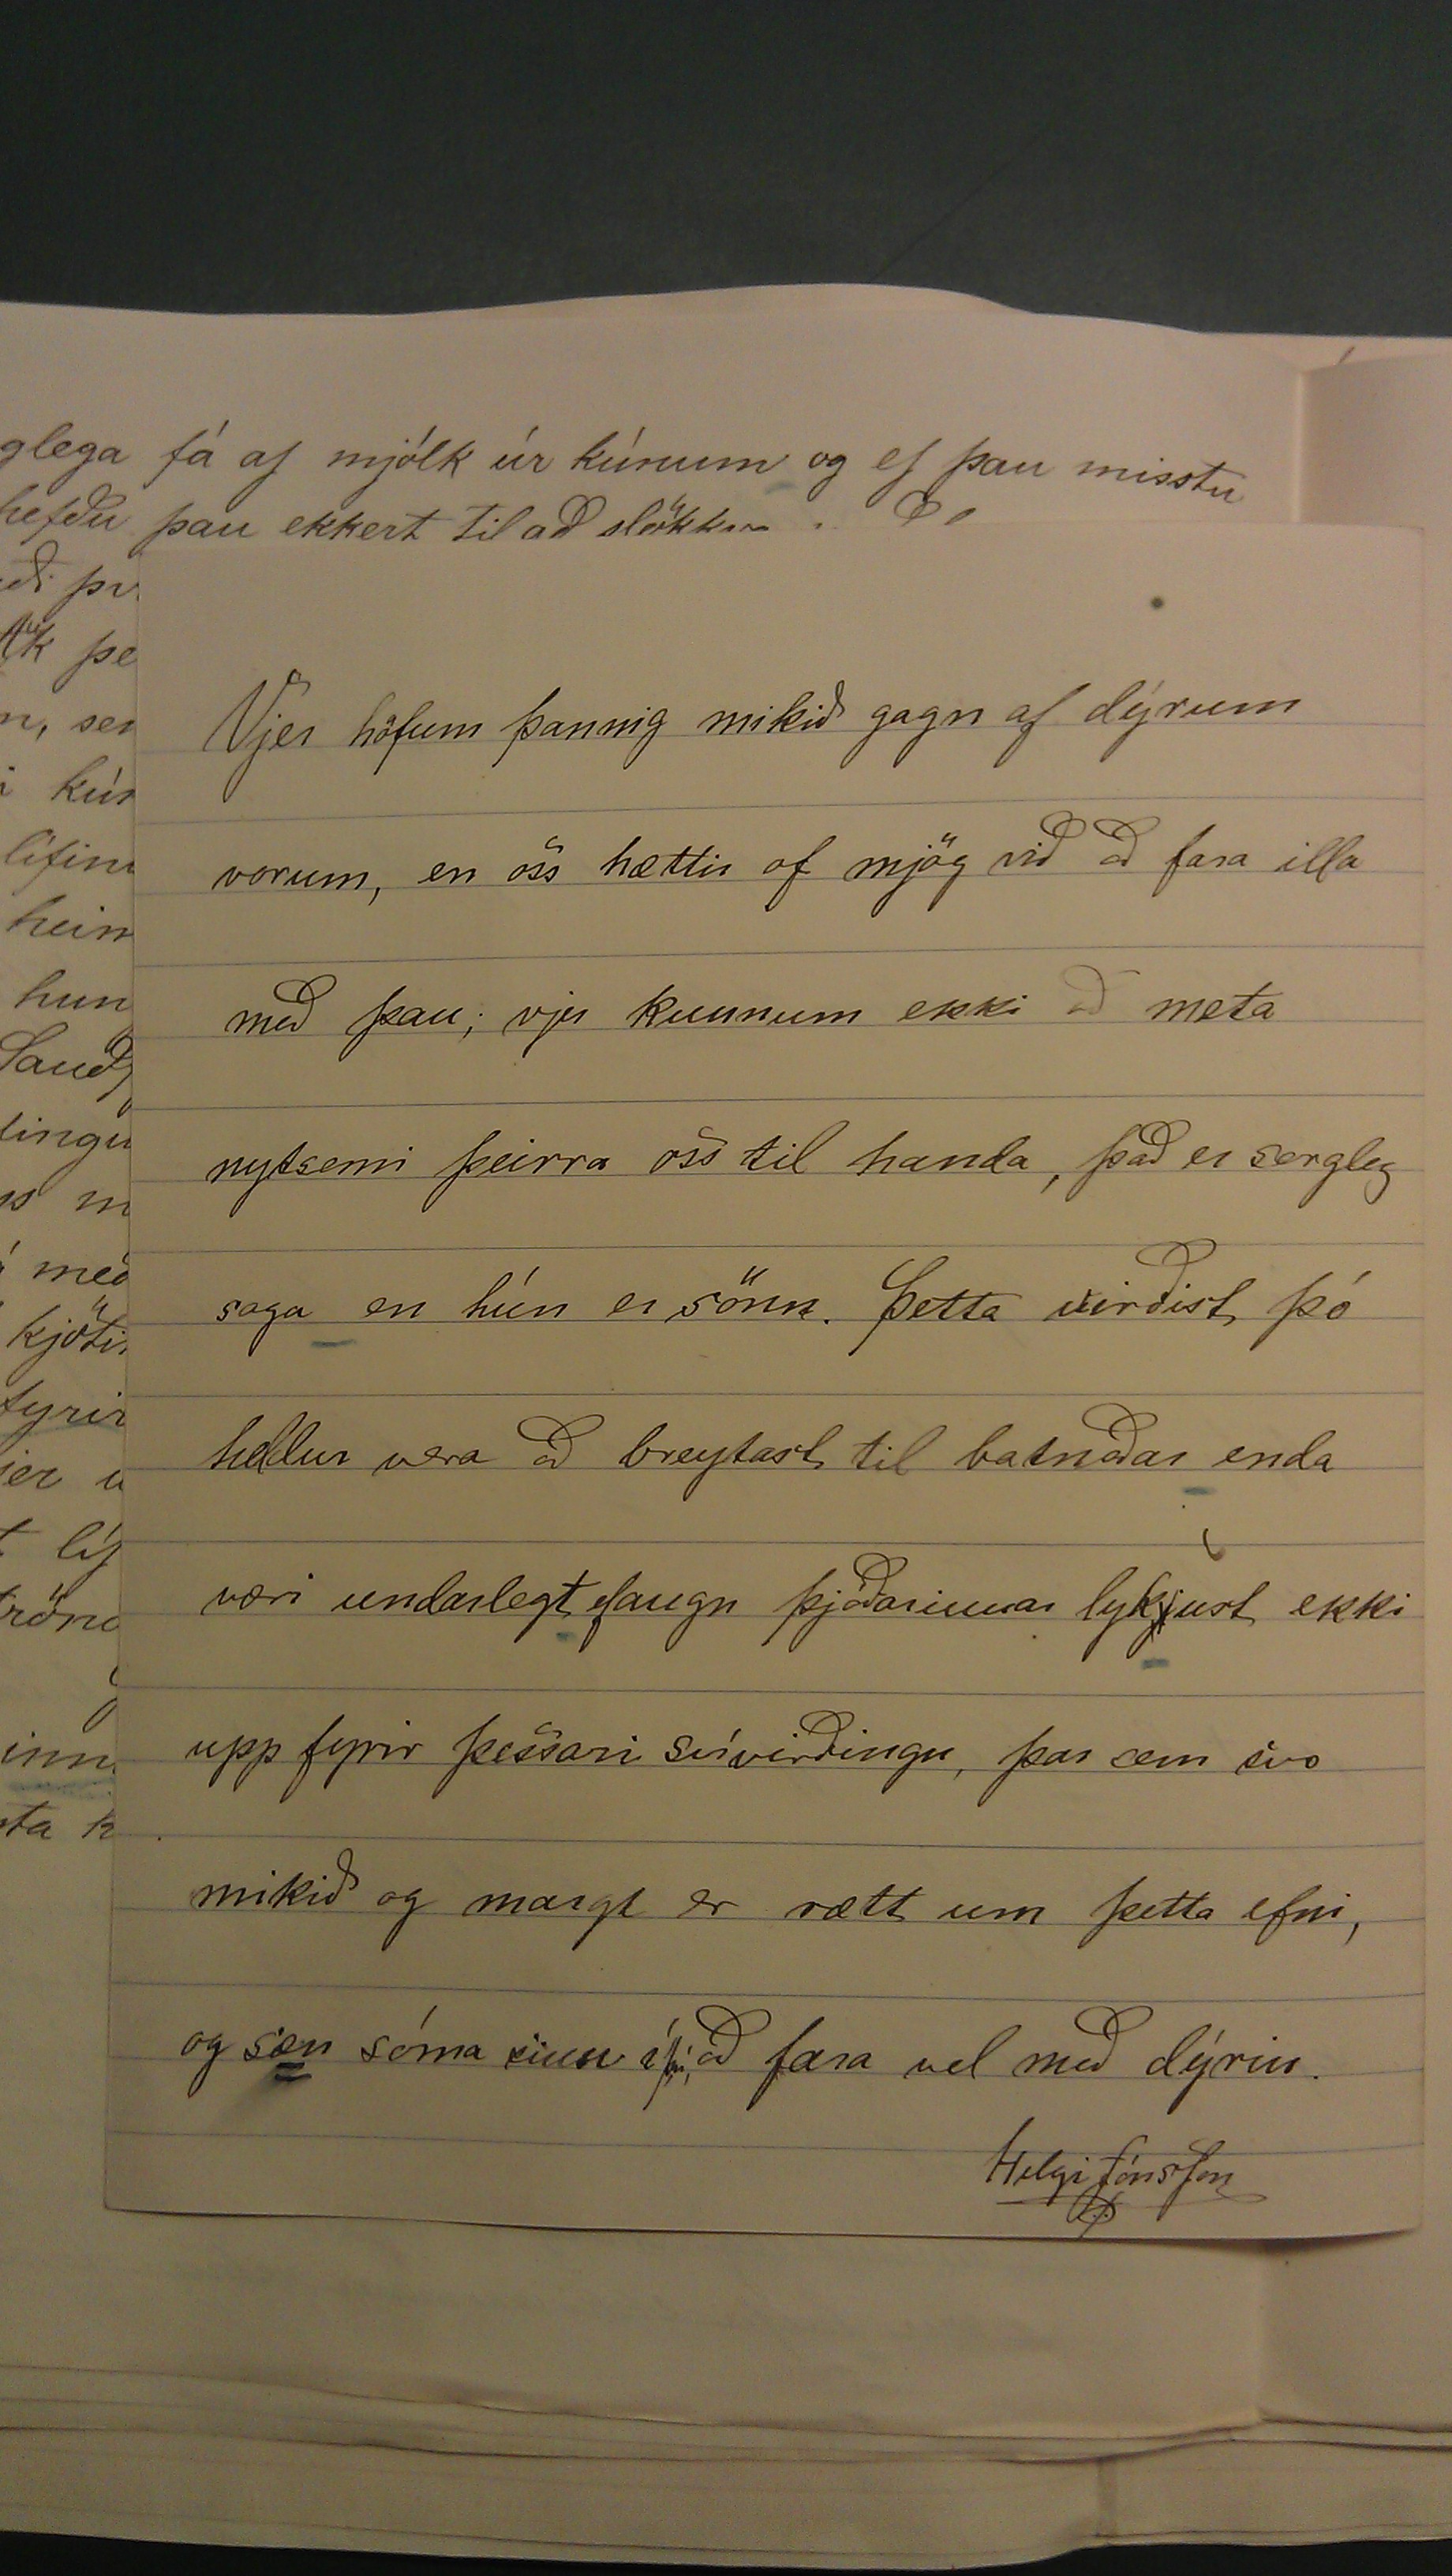 glega fá af mjólk úr kúnum og ef þau misstu
hefðu þau ekkert til að slökkva
kúr
hein
hun
með
fyrir
Vjer höfum þannig mikið gagn af dýrum
vorum, en oss hættir of mjög við að fara illa
með þau; vjer kunnum ekki að meta
nytsemi þeirra oss til handa, það er sorgleg
saga en hún er sönn. Þetta virðist þó
heldur vera að breytast til batnaðar enda
væri undarlegt, ef augu þjóðarinnar lykjust ekki
upp fyrir þessari svívirðingu, þar sem svo
mikið og margt er rætt um þetta efni,
og sæu sóma sinn í því, að fara vel með dýrin.
Helgi Jónsson